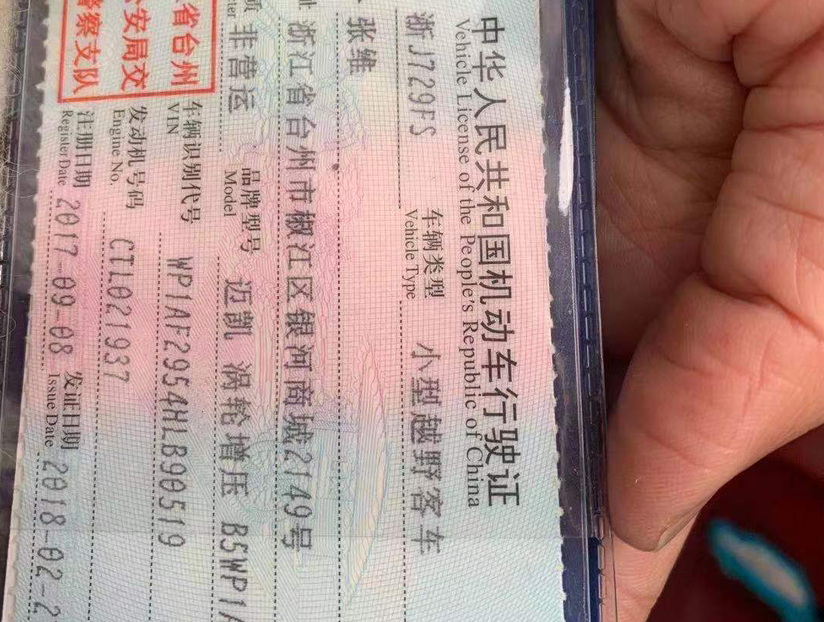 中华人民共和国机动车行驶证
Vehicle License of the People's Republic of China
浙J729FS 车辆类型 小型越野客车
Vehicle Type
张维
址 浙江省台州市椒江区银河商城2149号
质 非营运 品牌型号 迈凯 涡轮增压 B5WP1A
Model
省台州 车辆识别代号 WP1AF2954HLB90519
VIN
安局交 发动机号码 CTL021937
Engine No.
警察支队 注册日期 2017-09-08 发证日期 2018-02-2
Register Date Issue Date